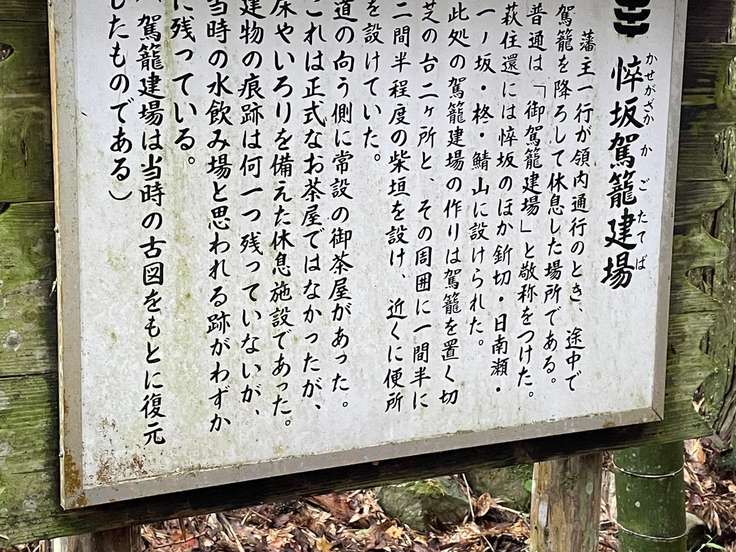 悴坂駕籠建場
かせがざかかごたてば
藩主一行が領内通行のとき、途中で
駕籠を降ろして休息した場所である。
普通は「御駕籠建場」と敬称をつけた。
萩往還には悴坂のほか釿切・日南瀬・
一ノ坂・柊・鯖山に設けられた。
此処の駕籠建場の作りは駕籠を置く切
芝の台二ヶ所と、その周囲に一間半に
二間半程度の柴垣を設け、近くに便所
を設けていた。
道の向う側に常設の御茶屋があった。
これは正式なお茶屋ではなかったが、
床やいろりを備えた休息施設であった。
建物の痕跡は何一つ残っていないが、
当時の水飲み場と思われる跡がわずか
に残っている。
駕籠建場は当時の古図をもとに復元
したものである)